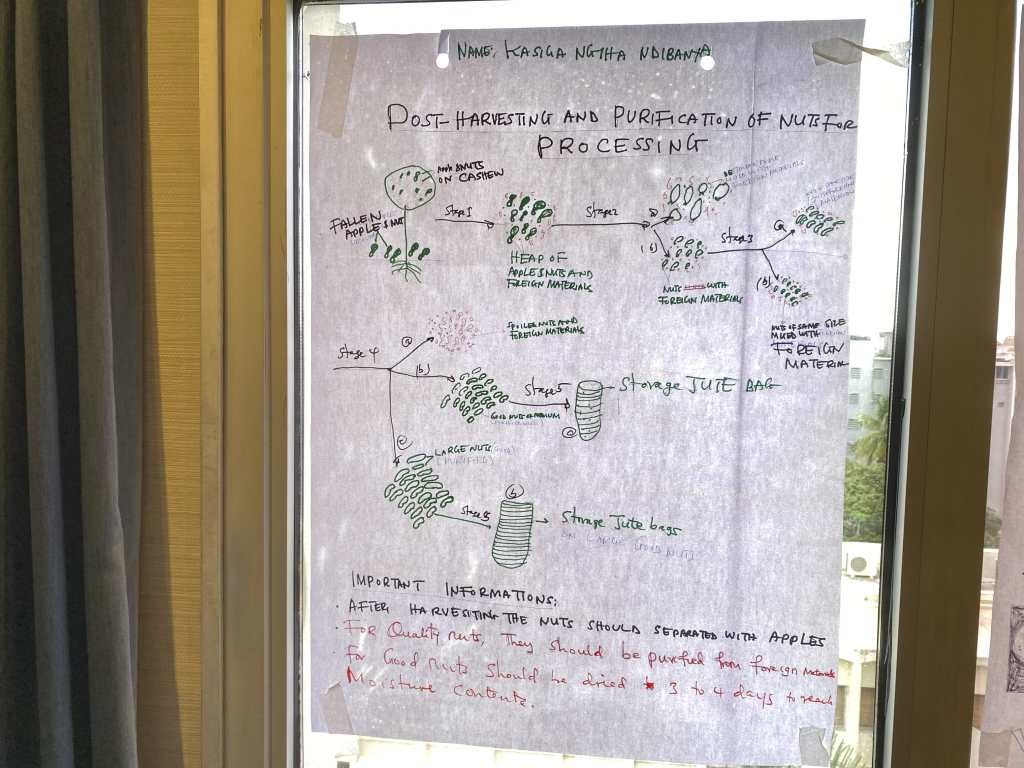 NAME: KASIGA NGIHA NDIBANYA
POST-HARVESTING AND PURIFICATION OF NUTS FOR
PROCESSING
Apple & NUTS
ON CASHEW
FALLEN
APPLE & NUT
Stage 1
HEAP OF
APPLE & NUTS AND
FOREIGN MATERIALS
Stage 2
(a)
(b)
NUTS WITH
FOREIGN MATERIALS
Stage 3
(a)
(b)
NUTS OF SAME SIZE
MIXED WITH
FOREIGN
MATERIAL
Stage 4
(a)
SPOILED NUTS AND
FOREIGN MATERIALS
(b)
GOOD NUTS OF MEDIUM
Stage 5
(a)
STORAGE JUTE BAG
(c)
LARGE NUTS
(PURIFIED)
Stage 5
(b)
Storage Jute bags
ON LARGE GOOD NUTS
IMPORTANT INFORMATIONS:
• AFTER HARVESITING THE NUTS SHOULD SEPARATED WITH APPLES
• For Quality nuts, They should be purified from foreign materials
• For Good nuts should be dried 3 to 4 days to reach
Moisture Contents.